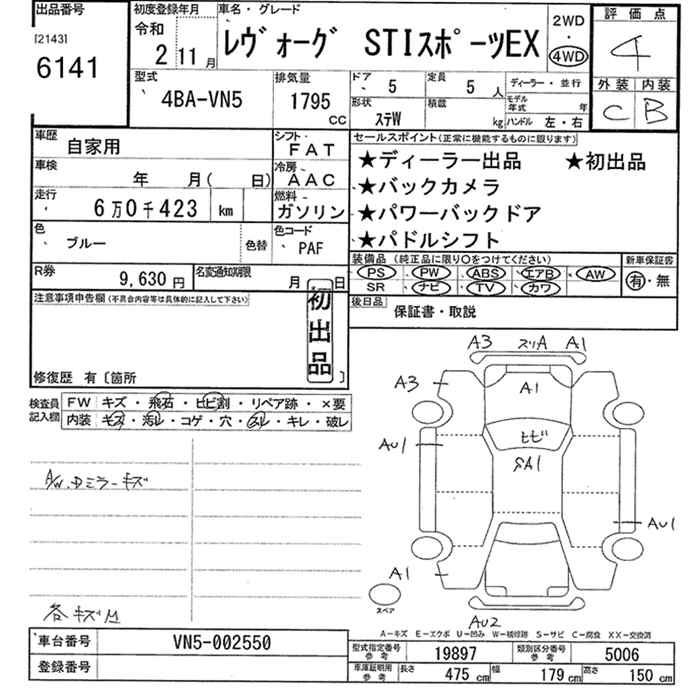 出品番号 初度登録年月 車名・グレード 評価点
[2143] 令和 2WD
6141 2年 11月 レヴォーグ STIスポーツEX ・ 4WD 4
型式 排気量 ドア 定員 ディーラー・並行 外装 内装
4BA-VN5 1795 CC 5 5人 モデル年式 年 C B
形状 積載
ステW kg ハンドル 左・右
車歴 自家用 シフト FAT セールスポイント(正常に機能するものに限ります)
車検 年 月( 日) 冷房 AAC ★ディーラー出品 ★初出品
走行 6万0千423 km 燃料 ガソリン ★バックカメラ
★パワーバックドア
色 ブルー 色替 色コード PAF ★パドルシフト
R券 9,630円 名変通知期限 月 日 装備品(純正品に限り○をつけてください) 新車保証書
PS PW ABS エアB AW 有・無
SR ナビ TV カワ
注意事項申告欄(不具合内容等は具体的に記入して下さい) 初出品 後日品 保証書・取説
修復歴 有〔箇所 〕
検査員記入欄 FW キズ・飛石・ヒビ割・リペア跡・×要
内装 キズ・汚レ・コゲ・穴・スレ・キレ・破レ
A3 スリA A1
A3 A1
AU1 ヒビ
A1
AW.Dミラーキズ
AU1
A1
スペア
各キズ
AU2
A-キズ E-エクボ U-凹み W-補修跡 S-サビ C-腐食 XX-交換済
車台番号 VN5-002550 型式指定番号参考 19897 類別区分番号参考 5006
登録番号 車庫証明用参考 長さ 475cm 幅 179cm 高さ 150cm